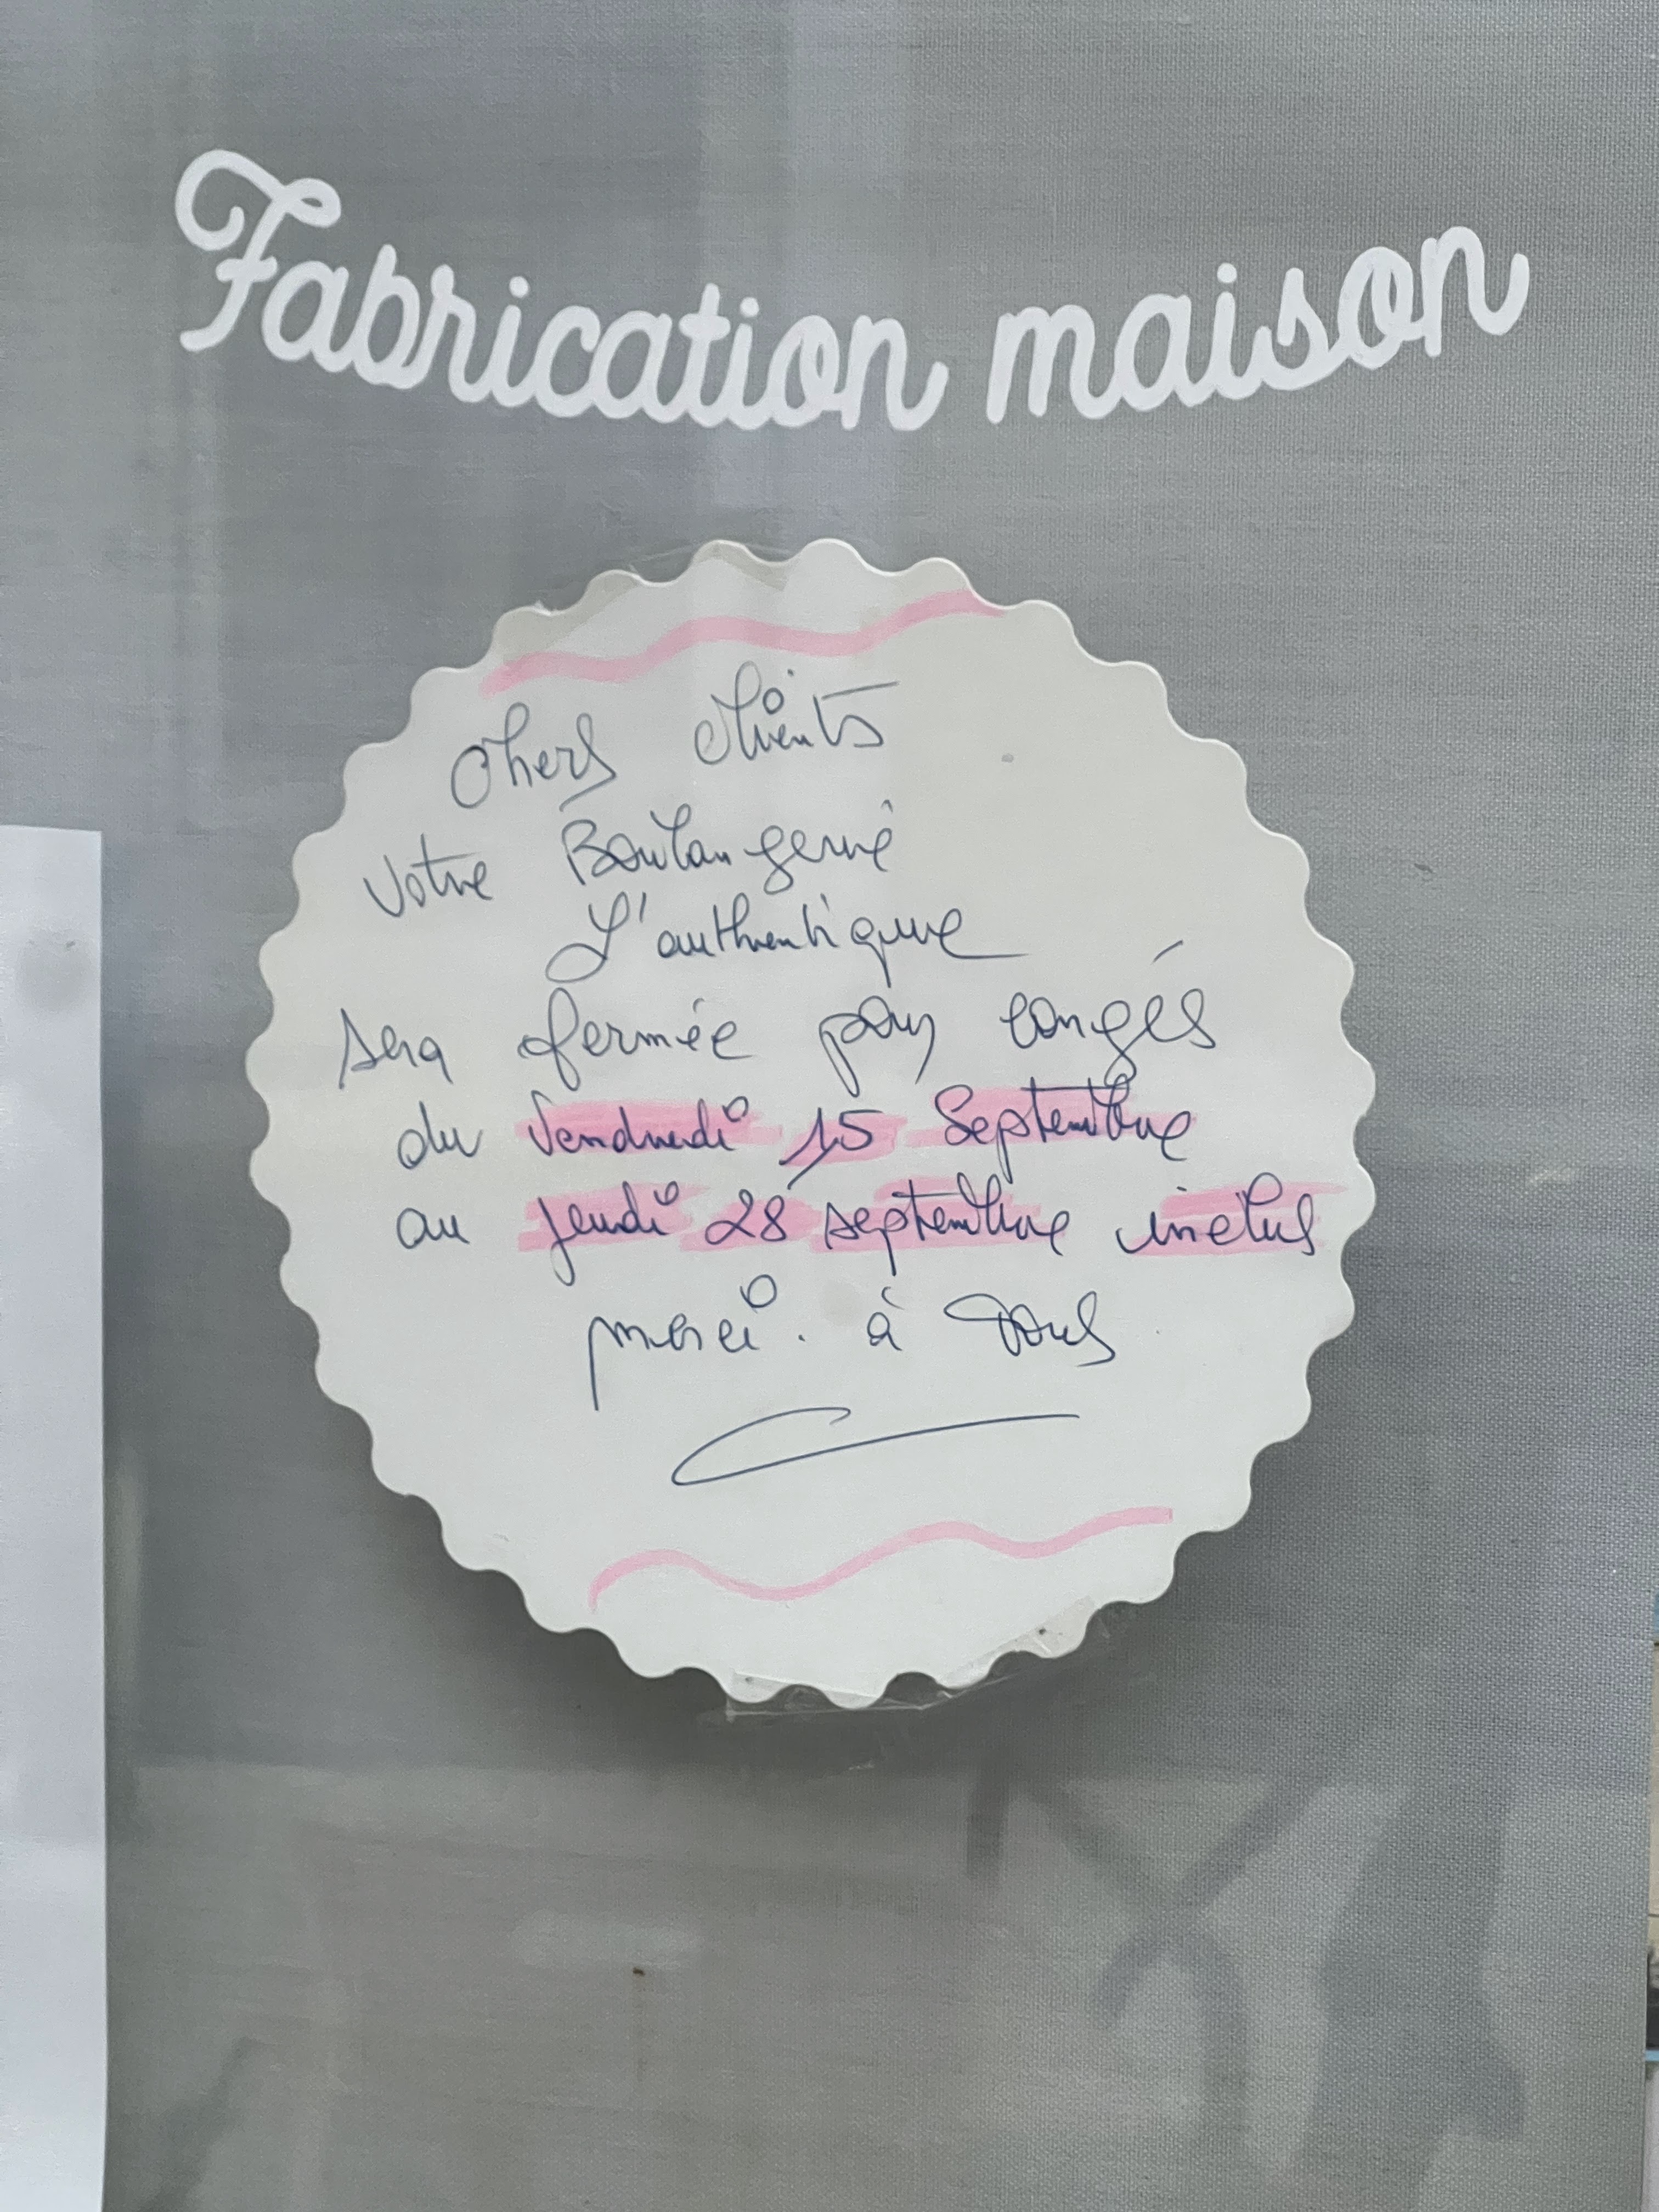 Fabrication maison
Chers clients
Votre Boulangerie
L'authentique
sera fermée pour congés
du Vendredi 15 Septembre
au jeudi 28 septembre inclus
merci. à tous